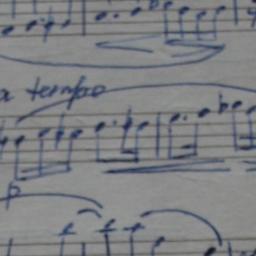 a tempo
p